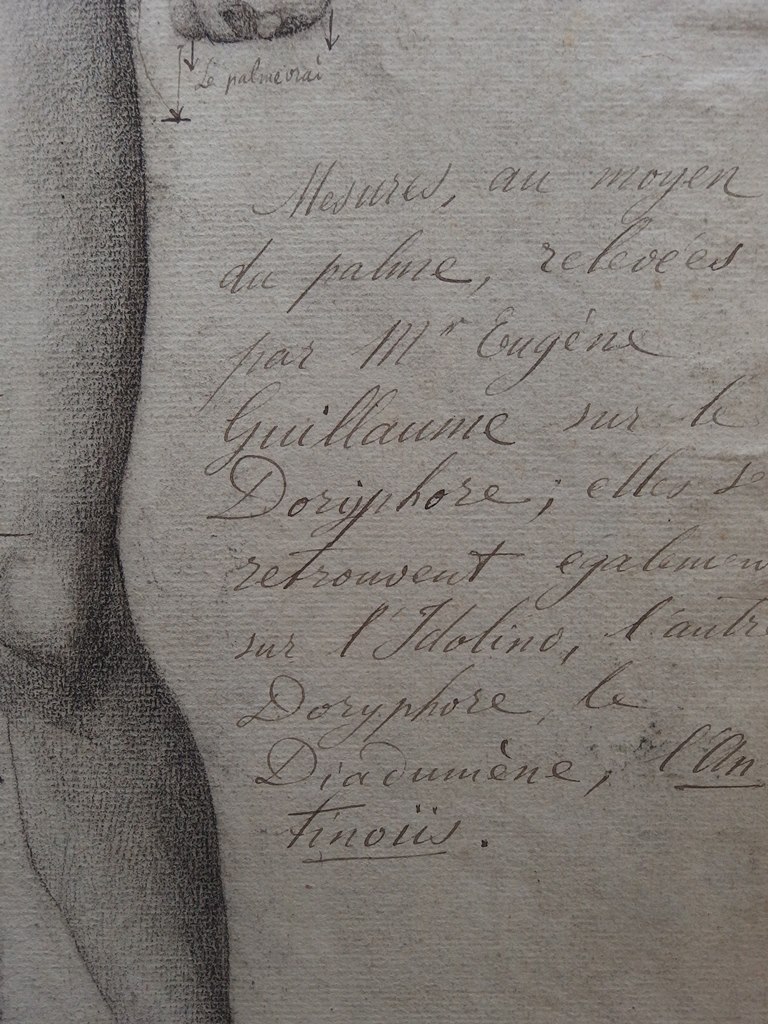 Le palme vrai
Mesures, au moyen
du palme, relevées
par Mr Eugène
Guillaume sur le
Doryphore; elles se
retrouvent égalemen
sur l'Idolino, l'autre
Doryphore, le
Diadumène, l'An
tinoüs.